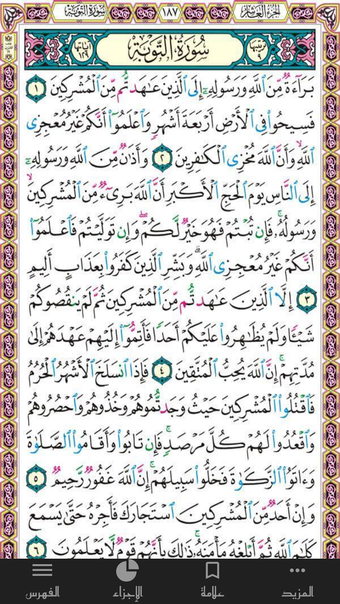 سورة التوبة ١٨٧ الجزء العاشر
سُورَةُ التَّوْبَةِ
بَرَآءَةٌ مِّنَ ٱللَّهِ وَرَسُولِهِۦٓ إِلَى ٱلَّذِينَ عَٰهَدتُّم مِّنَ ٱلْمُشْرِكِينَ ١
فَسِيحُوا۟ فِى ٱلْأَرْضِ أَرْبَعَةَ أَشْهُرٍ وَٱعْلَمُوٓا۟ أَنَّكُمْ غَيْرُ مُعْجِزِى
ٱللَّهِ وَأَنَّ ٱللَّهَ مُخْزِى ٱلْكَٰفِرِينَ ٢ وَأَذَٰنٌ مِّنَ ٱللَّهِ وَرَسُولِهِۦٓ
إِلَى ٱلنَّاسِ يَوْمَ ٱلْحَجِّ ٱلْأَكْبَرِ أَنَّ ٱللَّهَ بَرِىٓءٌ مِّنَ ٱلْمُشْرِكِينَ
وَرَسُولُهُۥ فَإِن تُبْتُمْ فَهُوَ خَيْرٌ لَّكُمْ وَإِن تَوَلَّيْتُمْ فَٱعْلَمُوٓا۟
أَنَّكُمْ غَيْرُ مُعْجِزِى ٱللَّهِ وَبَشِّرِ ٱلَّذِينَ كَفَرُوا۟ بِعَذَابٍ أَلِيمٍ
٣ إِلَّا ٱلَّذِينَ عَٰهَدتُّم مِّنَ ٱلْمُشْرِكِينَ ثُمَّ لَمْ يَنقُصُوكُمْ
شَيْـًٔا وَلَمْ يُظَٰهِرُوا۟ عَلَيْكُمْ أَحَدًا فَأَتِمُّوٓا۟ إِلَيْهِمْ عَهْدَهُمْ إِلَىٰ
مُدَّتِهِمْ إِنَّ ٱللَّهَ يُحِبُّ ٱلْمُتَّقِينَ ٤ فَإِذَا ٱنسَلَخَ ٱلْأَشْهُرُ ٱلْحُرُمُ
فَٱقْتُلُوا۟ ٱلْمُشْرِكِينَ حَيْثُ وَجَدتُّمُوهُمْ وَخُذُوهُمْ وَٱحْصُرُوهُمْ
وَٱقْعُدُوا۟ لَهُمْ كُلَّ مَرْصَدٍ فَإِن تَابُوا۟ وَأَقَامُوا۟ ٱلصَّلَوٰةَ
وَءَاتَوُا۟ ٱلزَّكَوٰةَ فَخَلُّوا۟ سَبِيلَهُمْ إِنَّ ٱللَّهَ غَفُورٌ رَّحِيمٌ ٥
وَإِنْ أَحَدٌ مِّنَ ٱلْمُشْرِكِينَ ٱسْتَجَارَكَ فَأَجِرْهُ حَتَّىٰ يَسْمَعَ
كَلَٰمَ ٱللَّهِ ثُمَّ أَبْلِغْهُ مَأْمَنَهُۥ ذَٰلِكَ بِأَنَّهُمْ قَوْمٌ لَّا يَعْلَمُونَ ٦
المزيد علامة الإجزاء الفهرس